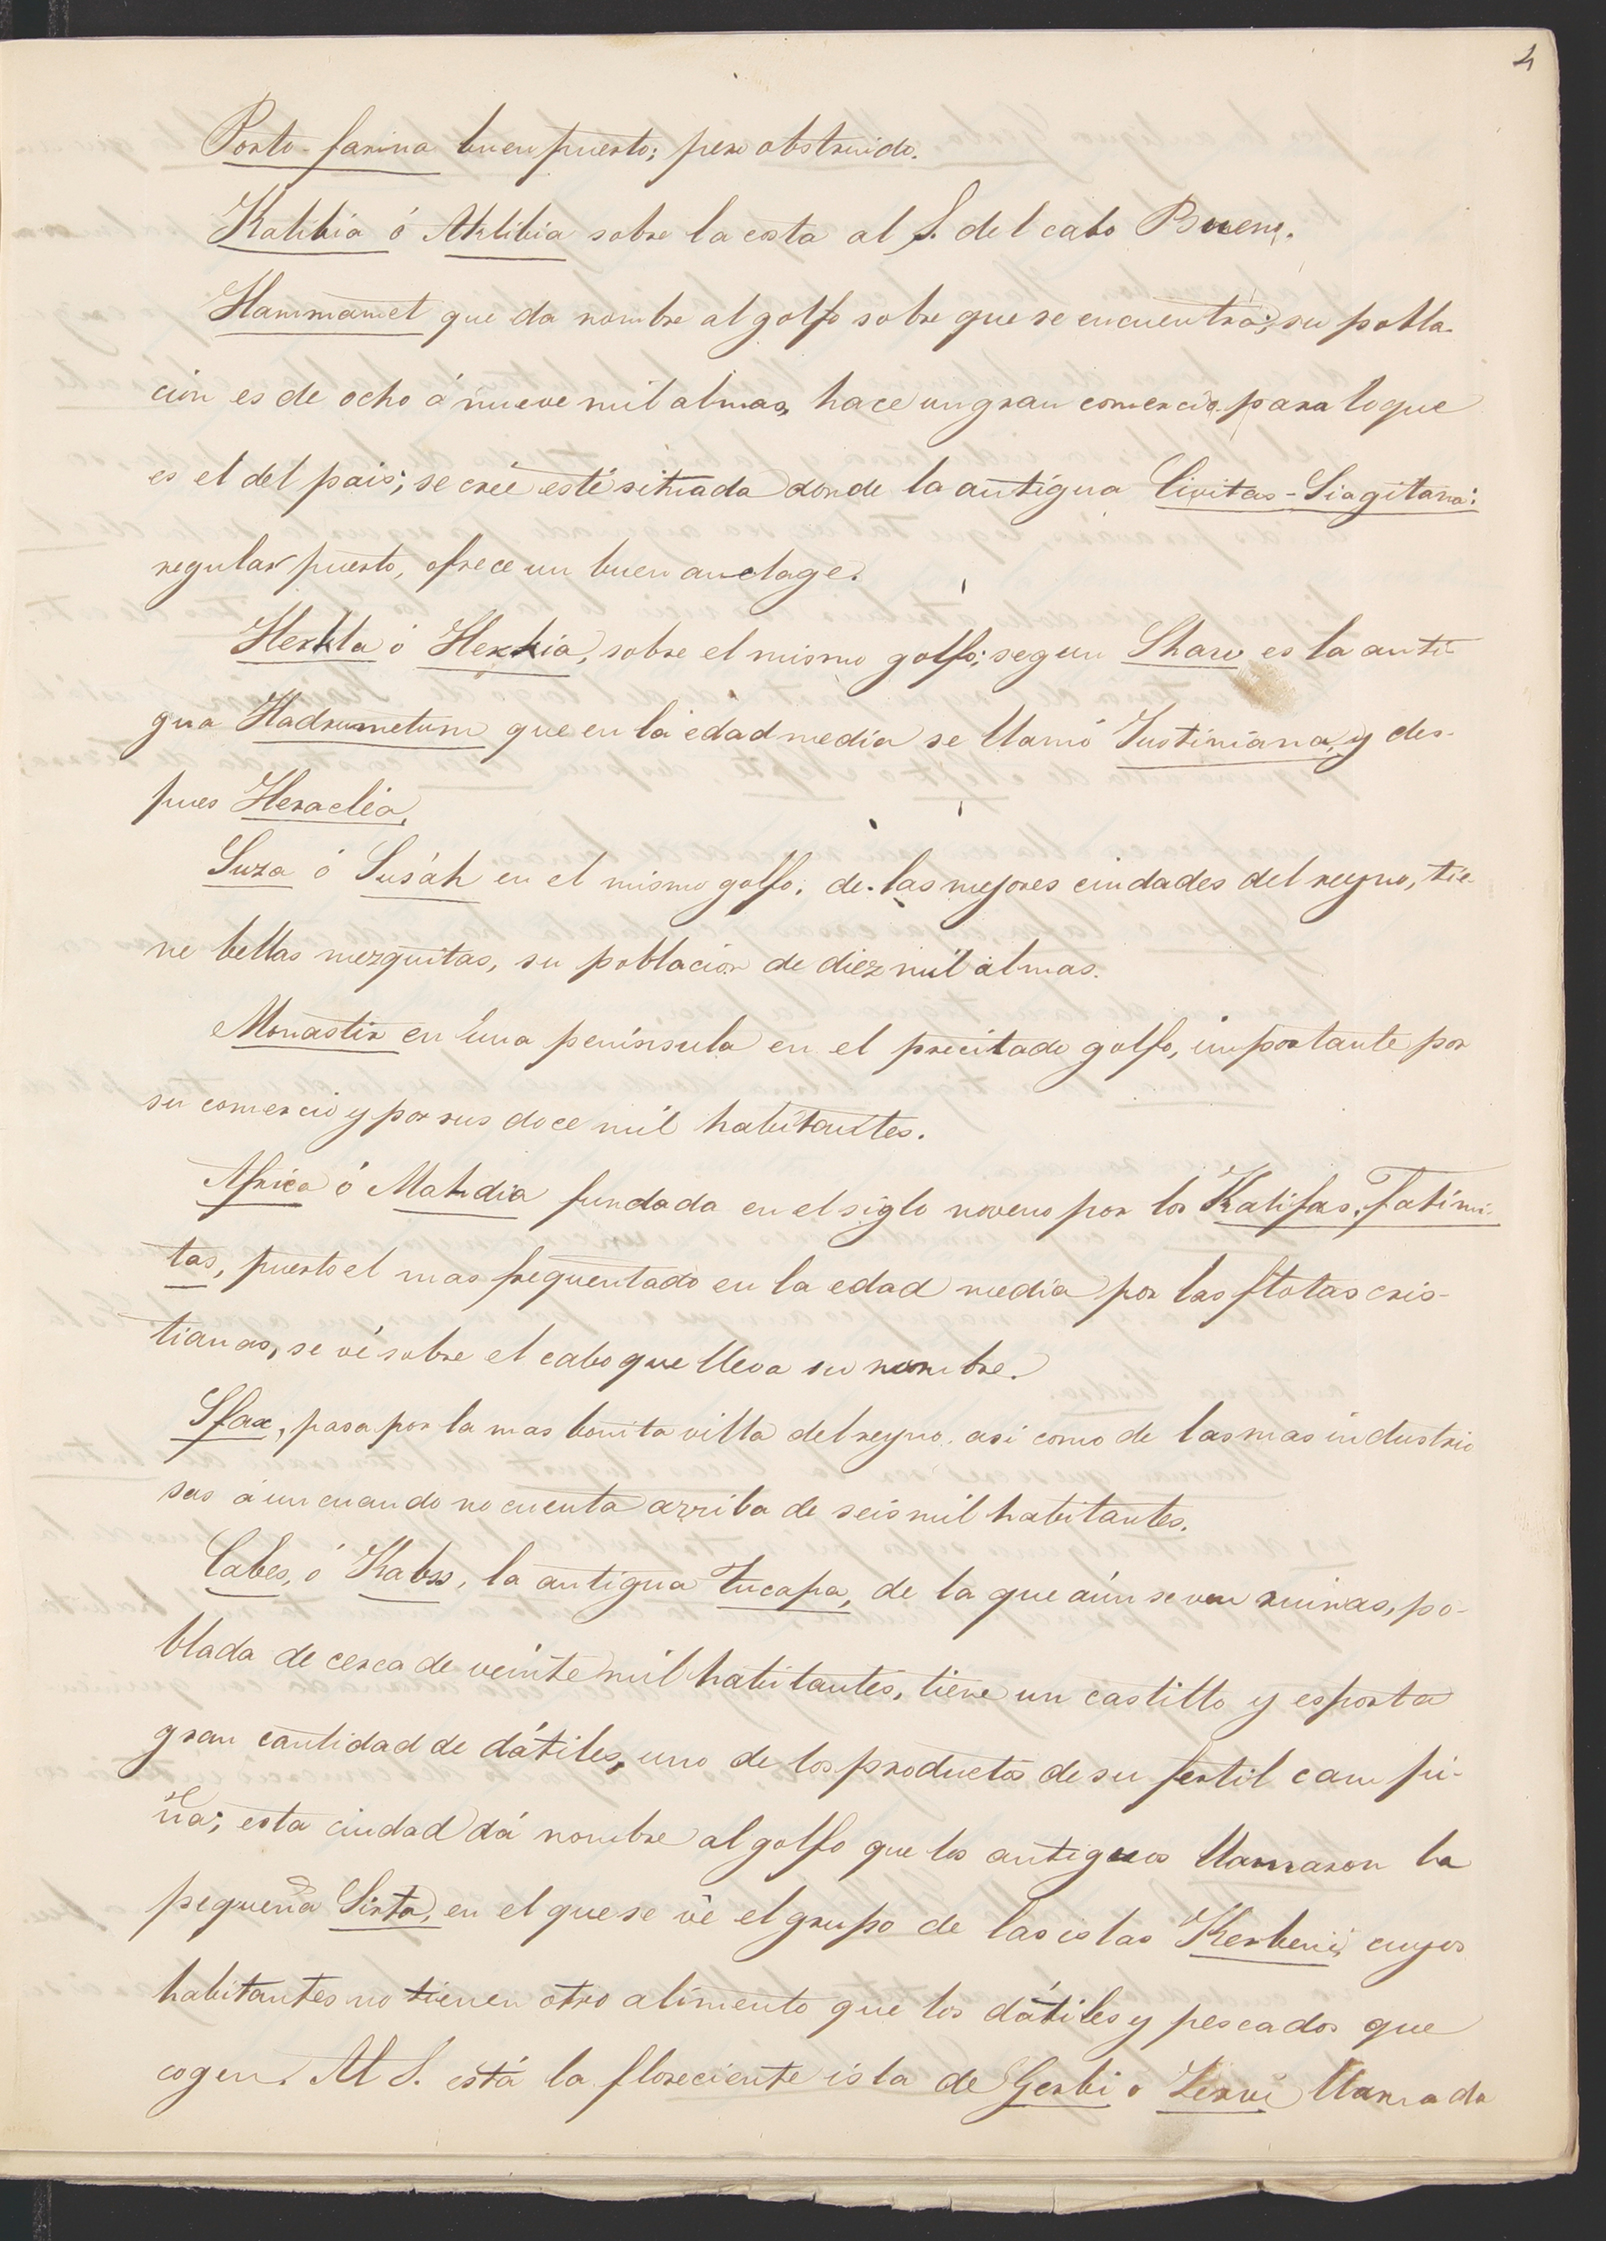 4
Porto-farina buen puerto; pero obstruido.
Kalibia ó Aklibia sobre la costa al S. del cabo Bueno.
Hammamet que da nombre al golfo sobre que se encuentra; su pobla-
cion es de ocho á nueve mil almas, hace un gran comercio para lo que
es el del pais; se crée esté situada donde la antigua Civitas-Siagitana:
regular puerto, ofrece un buen anclage.
Herkla ó Herkia, sobre el mismo golfo; segun Shaw es la anti-
gua Hadrumetum que en la edad media se llamó Justiniana, y des-
pues Heracléa.
Suza ó Susáh en el mismo golfo, de las mejores ciudades del reyno, tie-
ne bellas mezquitas, su poblacion de diez mil almas.
Monastir en una península en el precitado golfo, importante por
su comercio y por sus doce mil habitantes.
Africa ó Mahdia fundada en el siglo noveno por los Kalifas, Fatimi-
tas, puerto el mas frequentado en la edad media por las flotas cris-
tianas, se vé sobre el cabo que lleva su nombre.
Sfax, pasa por la mas bonita villa del reyno, asi como de las mas industrio
sas aun cuando no cuenta arriba de seis mil habitantes.
Cabes, ó Kabss, la antigua Tucapa, de la que aún se ven ruinas, po-
blada de cerca de veinte mil habitantes, tiene un castillo y esporta
gran cantidad de dátiles, uno de los productos de su fertil campi-
ña; esta ciudad dá nombre al golfo que los antiguos llamaron la
pequeña Sirta, en el que se vé el grupo de las islas Kerbeni, cuyos
habitantes no tienen otro alimento que los dátiles y pescados que
cogen. Al S. está la floreciente isla de Gerbi o Zervi llamada